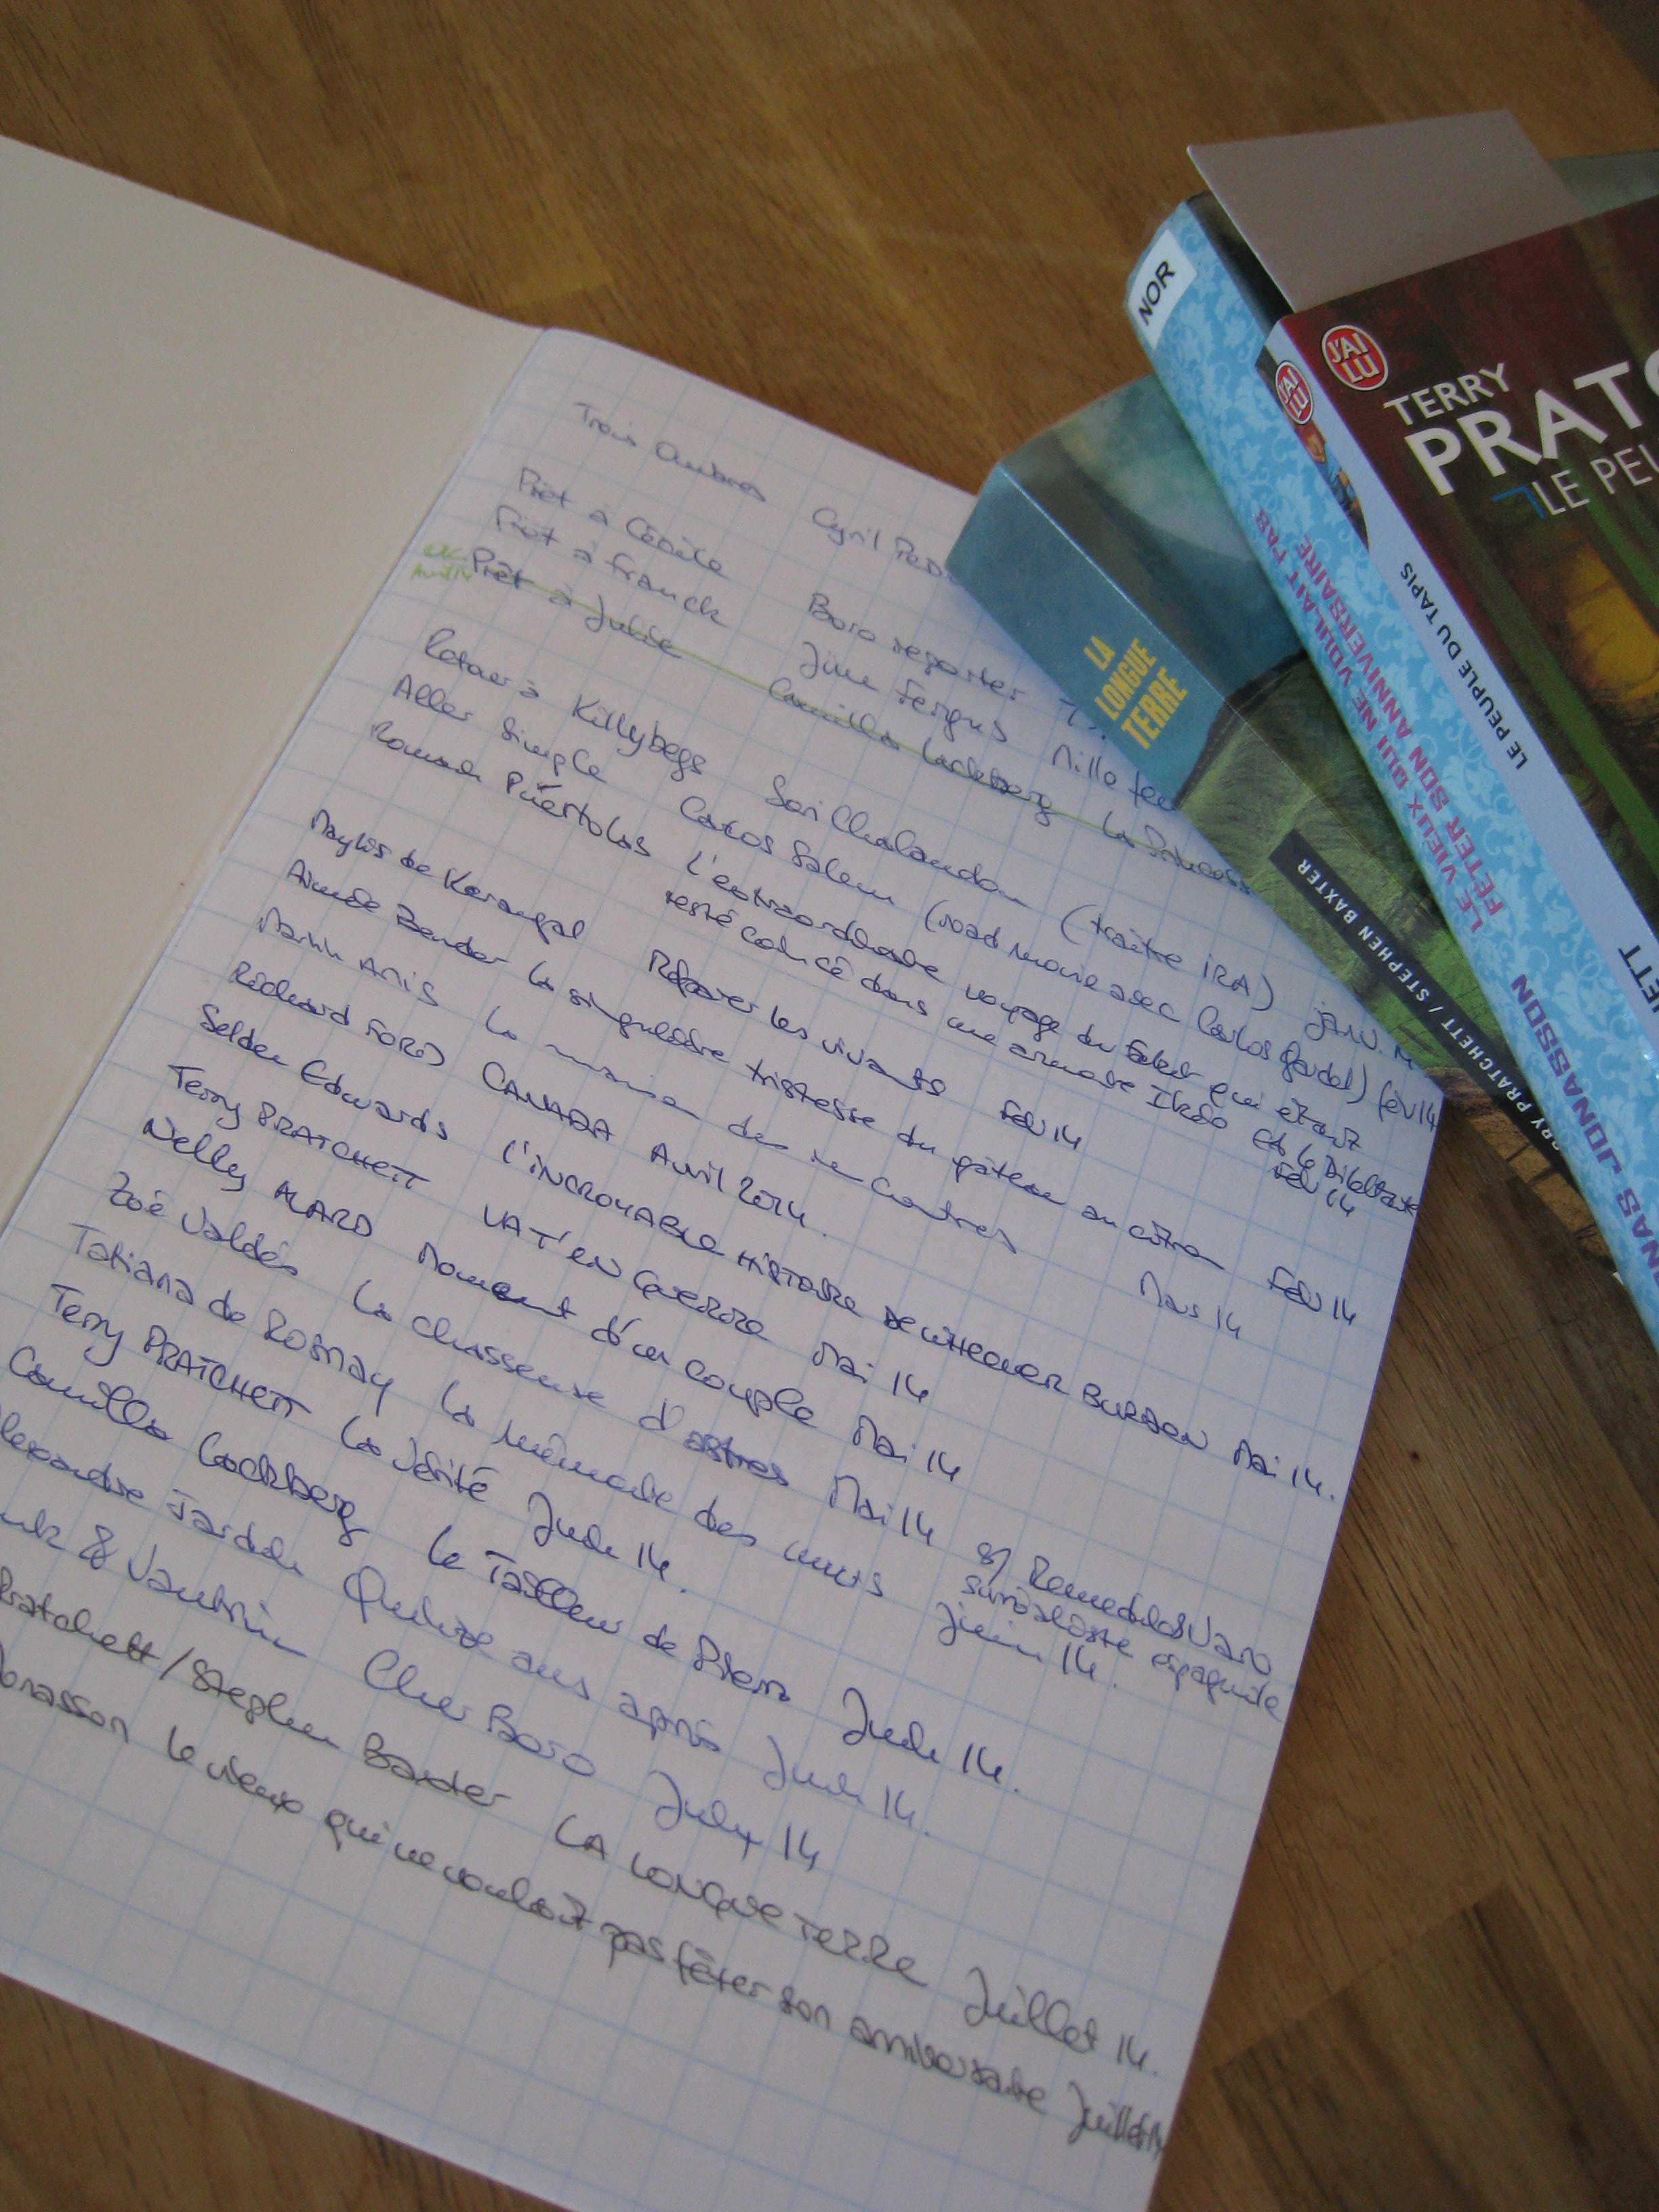 Trois Ombres Cyril PeD
Prêt à Cécile Boro reporter
Prêt à Franck Jim Fergus Mille fem
OK
Avril 14
Prêt à Julie Camilla Lackberg La Princess
Retour à Killybegs Sorj Chalandon (traître IRA) JANV. 14
Aller Simple Carlos Salem (road movie avec Carlos Gardel) Fév 14
Romain Puértolas L'extraordinaire voyage du Fakir qui était
resté coincé dans une armoire Ikea
Fév 14
Maylis de Kerangal Réparer les vivants Fév 14
Aimée Bender La singulière tristesse du gâteau au citron Fév 14
Martin Amis La maison des rencontres Mars 14
Richard FORD CANADA Avril 2014.
Selden Edwards L'INCROYABLE HISTOIRE DE WHEELER BURDEN Mai 14.
Terry PRATCHETT VA T'EN GUERRE Mai 14
Nelly ALARD Moment d'un couple Mai 14
Zoé Valdés La chasseuse d'astres Mai 14 Remedios Varo
surréaliste espagnole
Tatiana de Rosnay La mémoire des murs juin 14.
Terry PRATCHETT La Vérité Juin 14.
Camilla Lackberg Le Tailleur de Pierre Juin 14.
lexandre Jardin Quinze ans après Juin 14.
nk & Vautrin Cher Boro July 14
Pratchett / Stephen Baxter LA LONGUE TERRE Juillet 14.
Jonasson Le vieux qui ne voulait pas fêter son anniversaire Juillet 14
LA
LONGUE
TERRE
RY PRATCHETT / STEPHEN BAXTER
NOR
J'AI
LU
LE VIEUX QUI NE VOULAIT PAS
FÊTER SON ANNIVERSAIRE
NAS JONASSON
LE PEUPLE DU TAPIS
ETT
J'AI
LU
TERRY
PRATC
LE PEU